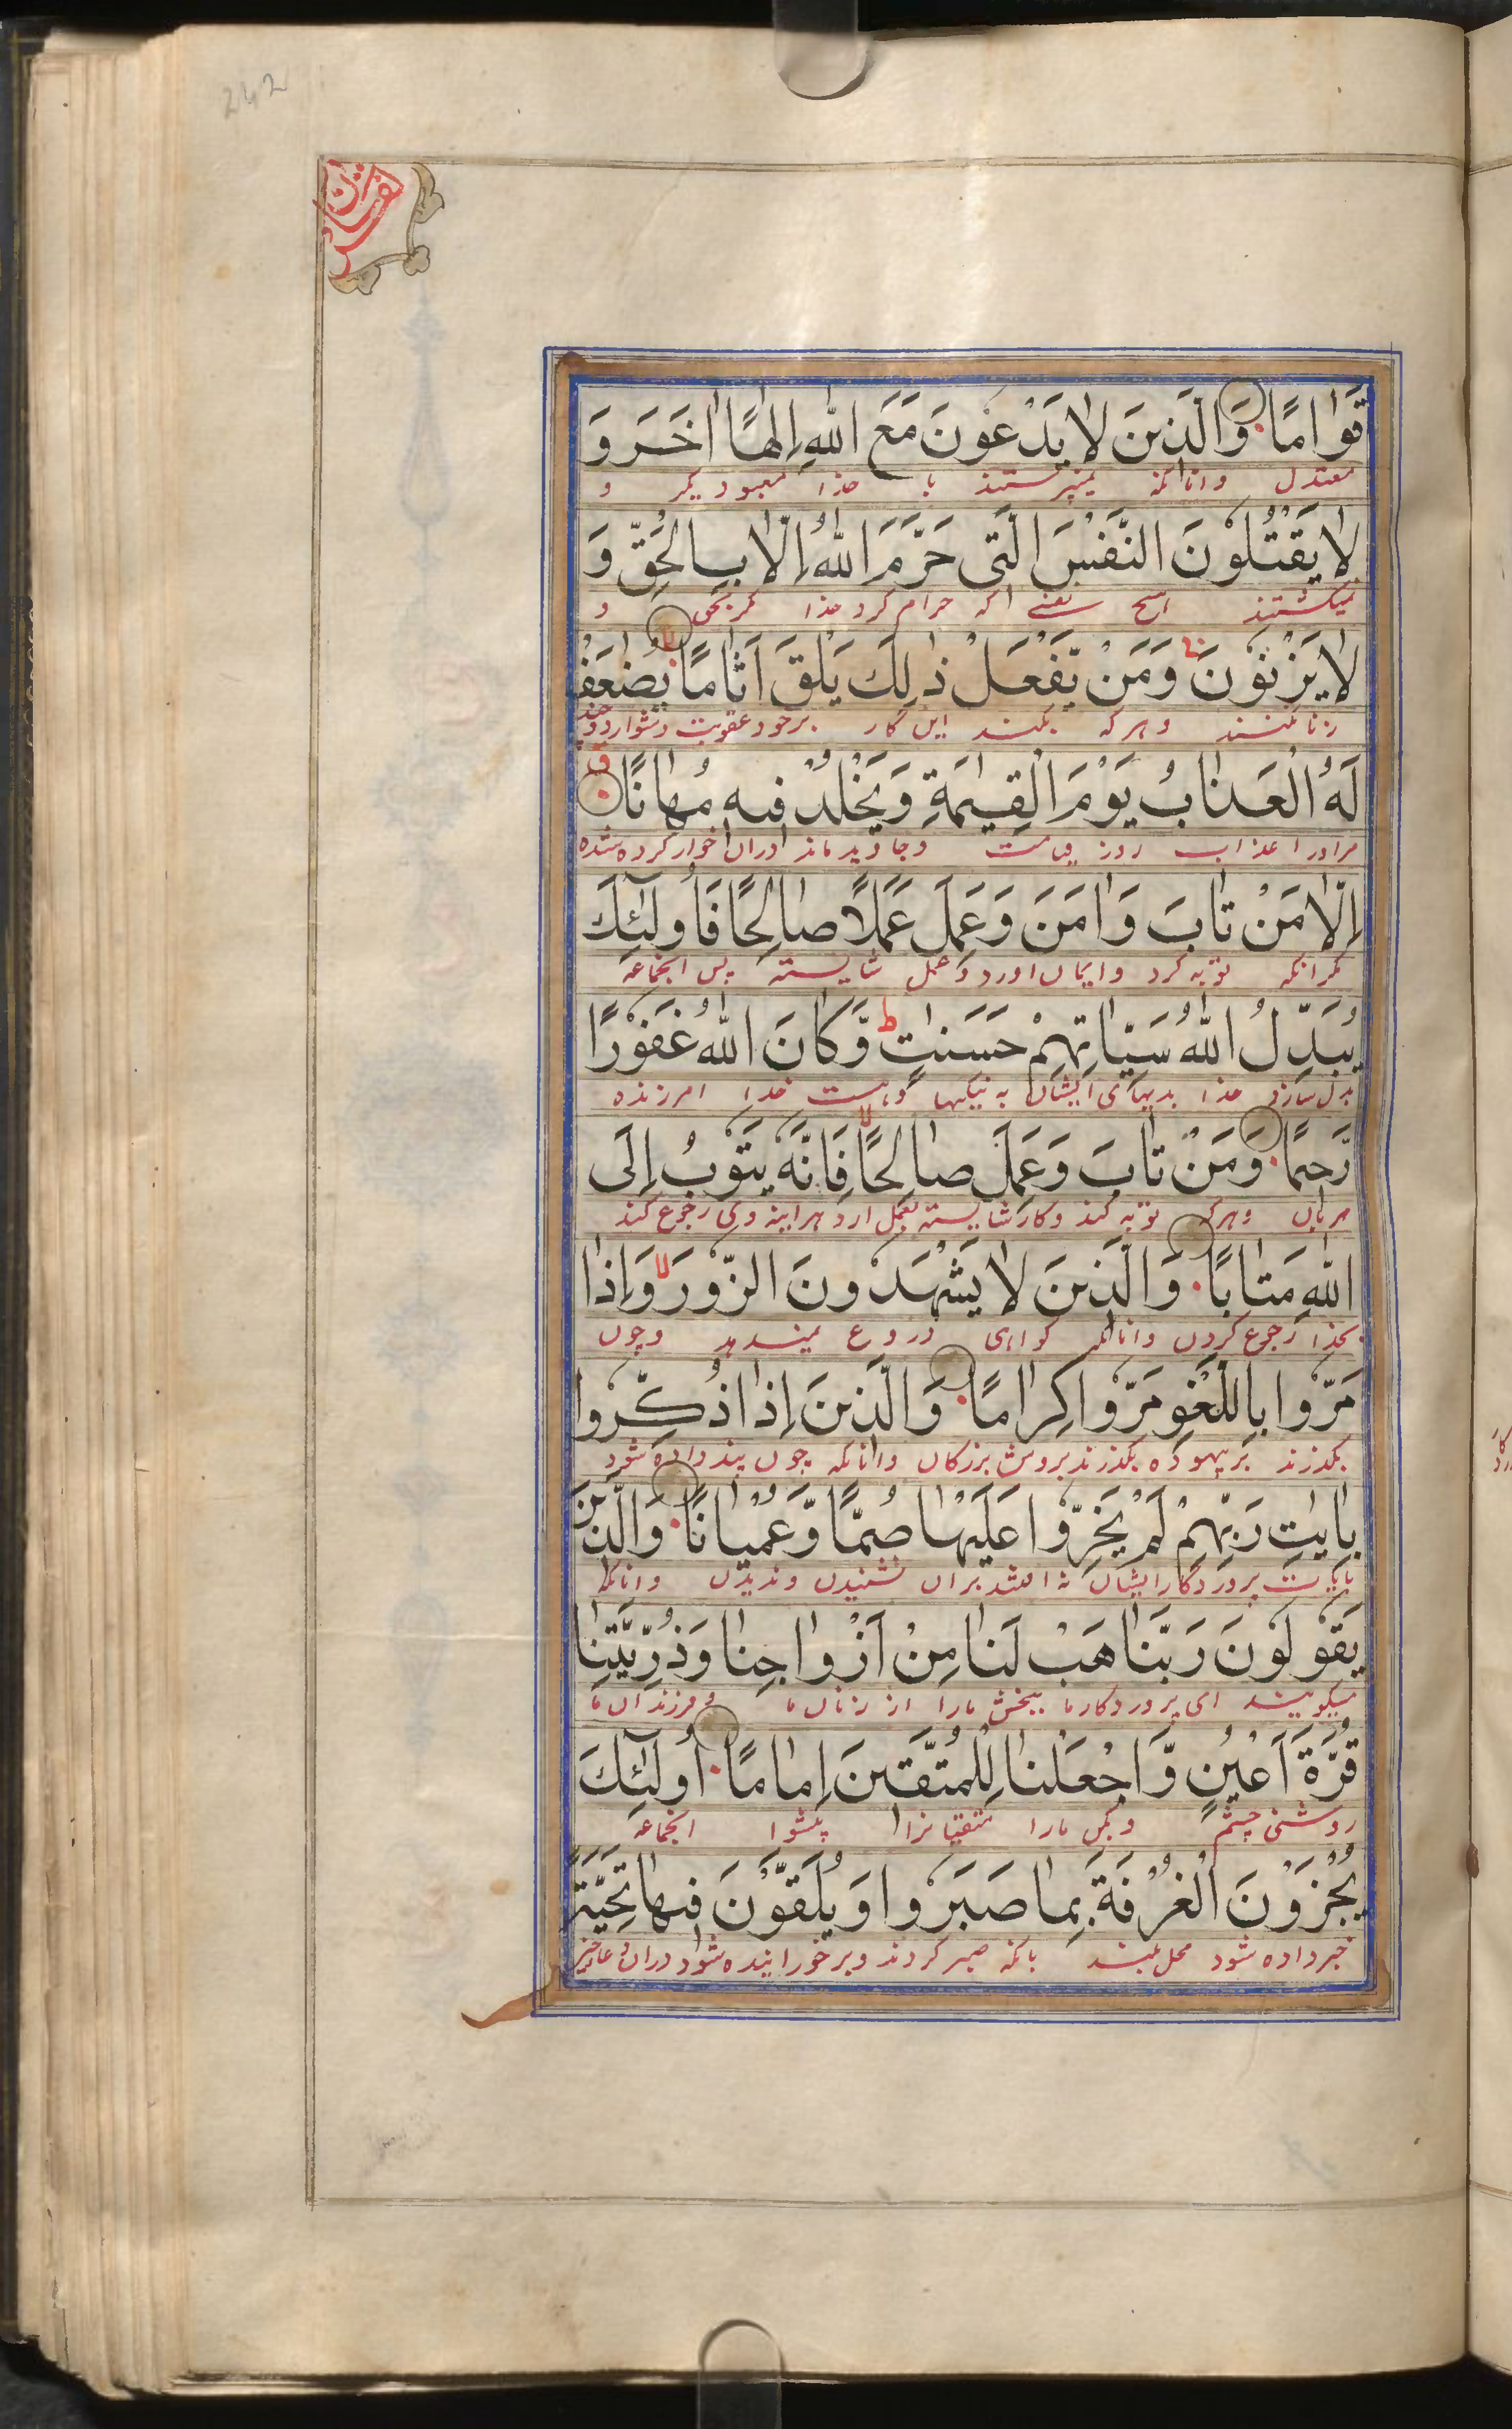 242
قَوَامًا وَالَّذِينَ لَا يَدْعُونَ مَعَ اللَّهِ إِلٰهًا اٰخَرَ وَ
معتدل وانانکه نمیپرستند با خدا معبود دیکر و
لَا يَقْتُلُونَ النَّفْسَ الَّتِي حَرَّمَ اللَّهُ إِلَّا بِالْحَقِّ وَ
نمیکشتند هیچ نفسی را که حرام کرد خدا مکر بحق و
لَا يَزْنُونَ وَمَنْ يَّفْعَلْ ذٰلِكَ يَلْقَ اَثَامًا يُضٰعَفْ
زنا نکنند وهرکه بکند این کار برخورد عقوبت دشوار دوچند
لَهُ الْعَذَابُ يَوْمَ الْقِيٰمَةِ وَيَخْلُدْ فِيهِ مُهَانًا
مراورا عذاب روز قیامت وجاوید ماند دران خوار کرده شده
إِلَّا مَنْ تَابَ وَاٰمَنَ وَعَمِلَ عَمَلًا صَالِحًا فَأُولٰٓئِكَ
مکر انکه توبه کرد وایمان اورد وعمل شایسته پس انجماعه
يُبَدِّلُ اللَّهُ سَيِّاٰتِهِمْ حَسَنٰتٍ ط وَّكَانَ اللَّهُ غَفُورًا
بدل سازد خدا بدیهای ایشان به نیکیها وهست خدا امرزنده
رَّحِيمًا وَمَنْ تَابَ وَعَمِلَ صَالِحًا فَإِنَّهُ يَتُوبُ إِلَى
مهربان وهرکه توبه کند وکار شایسته بعمل ارد هراینه وی رجوع کند
اللَّهِ مَتَابًا وَالَّذِينَ لَا يَشْهَدُونَ الزُّورَ لا وَإِذَا
بخدا رجوع کردن وانانکه کواهی دروغ نمیدهند وچون
مَرُّوا بِاللَّغْوِ مَرُّوا كِرَامًا وَالَّذِينَ إِذَا ذُكِّرُوا
بکذرند بر بیهوده بکذرند بروش بزرکان وانانکه چون پند داده شود
بِاٰيٰتِ رَبِّهِمْ لَمْ يَخِرُّوا عَلَيْهَا صُمًّا وَّعُمْيَانًا وَالَّذِينَ
بایات پروردکار ایشان نه افتند بران نشنیدن وندیدن وانانکه
يَقُولُونَ رَبَّنَا هَبْ لَنَا مِنْ اَزْوَاجِنَا وَذُرِّيّٰتِنَا
میکویند ای پروردکار ما ببخش مارا از زنان ما و فرزندان ما
قُرَّةَ اَعْيُنٍ وَّاجْعَلْنَا لِلْمُتَّقِينَ إِمَامًا أُولٰٓئِكَ
روشنی چشم وبکن مارا متقیانرا پیشوا انجماعه
يُجْزَوْنَ الْغُرْفَةَ بِمَا صَبَرُوا وَيُلَقَّوْنَ فِيهَا تَحِيَّةً
جزا داده شود محل بلند بانکه صبر کردند وبرخورانیده شود دران دعا خیر